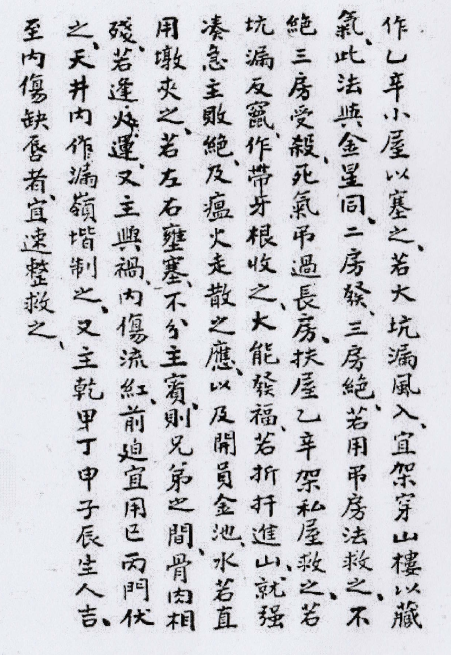 作乙辛小屋以塞之、若大坑漏風入、宜架穿山樓以藏
氣、此法與金星同、二房發、三房絕、若用吊房法救之、不
絕三房受殺、死氣吊過長房、扶屋乙辛架私屋救之、若
坑漏反竄、作帶牙根收之、大能發福、若折扦進山、就强
凑急主敗絕、及瘟火走散之應、以及開員金池、水若直
用墩夾之、若左右壅塞、不分主賓、則兄弟之間、骨肉相
殘、若逢火運、又主興禍、内傷流紅、前迫宜用巳丙門伏
之、天井内作漏嶺堦制之、又主乾甲丁申子辰生人吉、
至内傷缺唇者、宜速整救之、